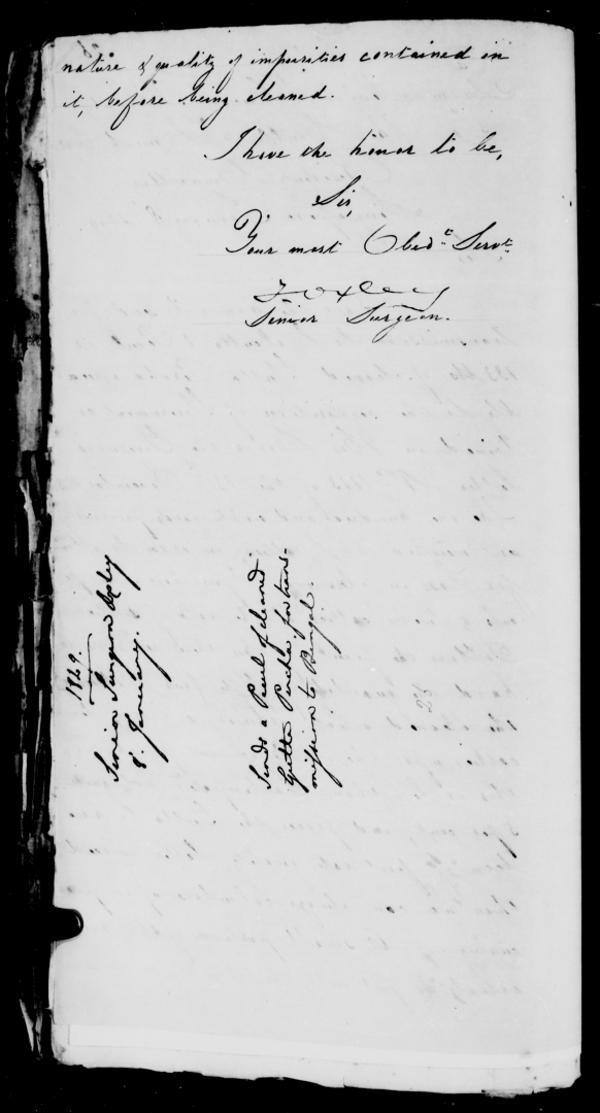 nature & quality of impurities contained in
it, before being cleaned.
I have the honor to be,
Sir,
Your most Obedt. Servt.
T Oxley
Senior Surgeon.
1849.
Senior Surgeon Oxley
8. January.
Sends a Picul of cleaned
Gutta Percha for trans-
mission to Bengal.
23